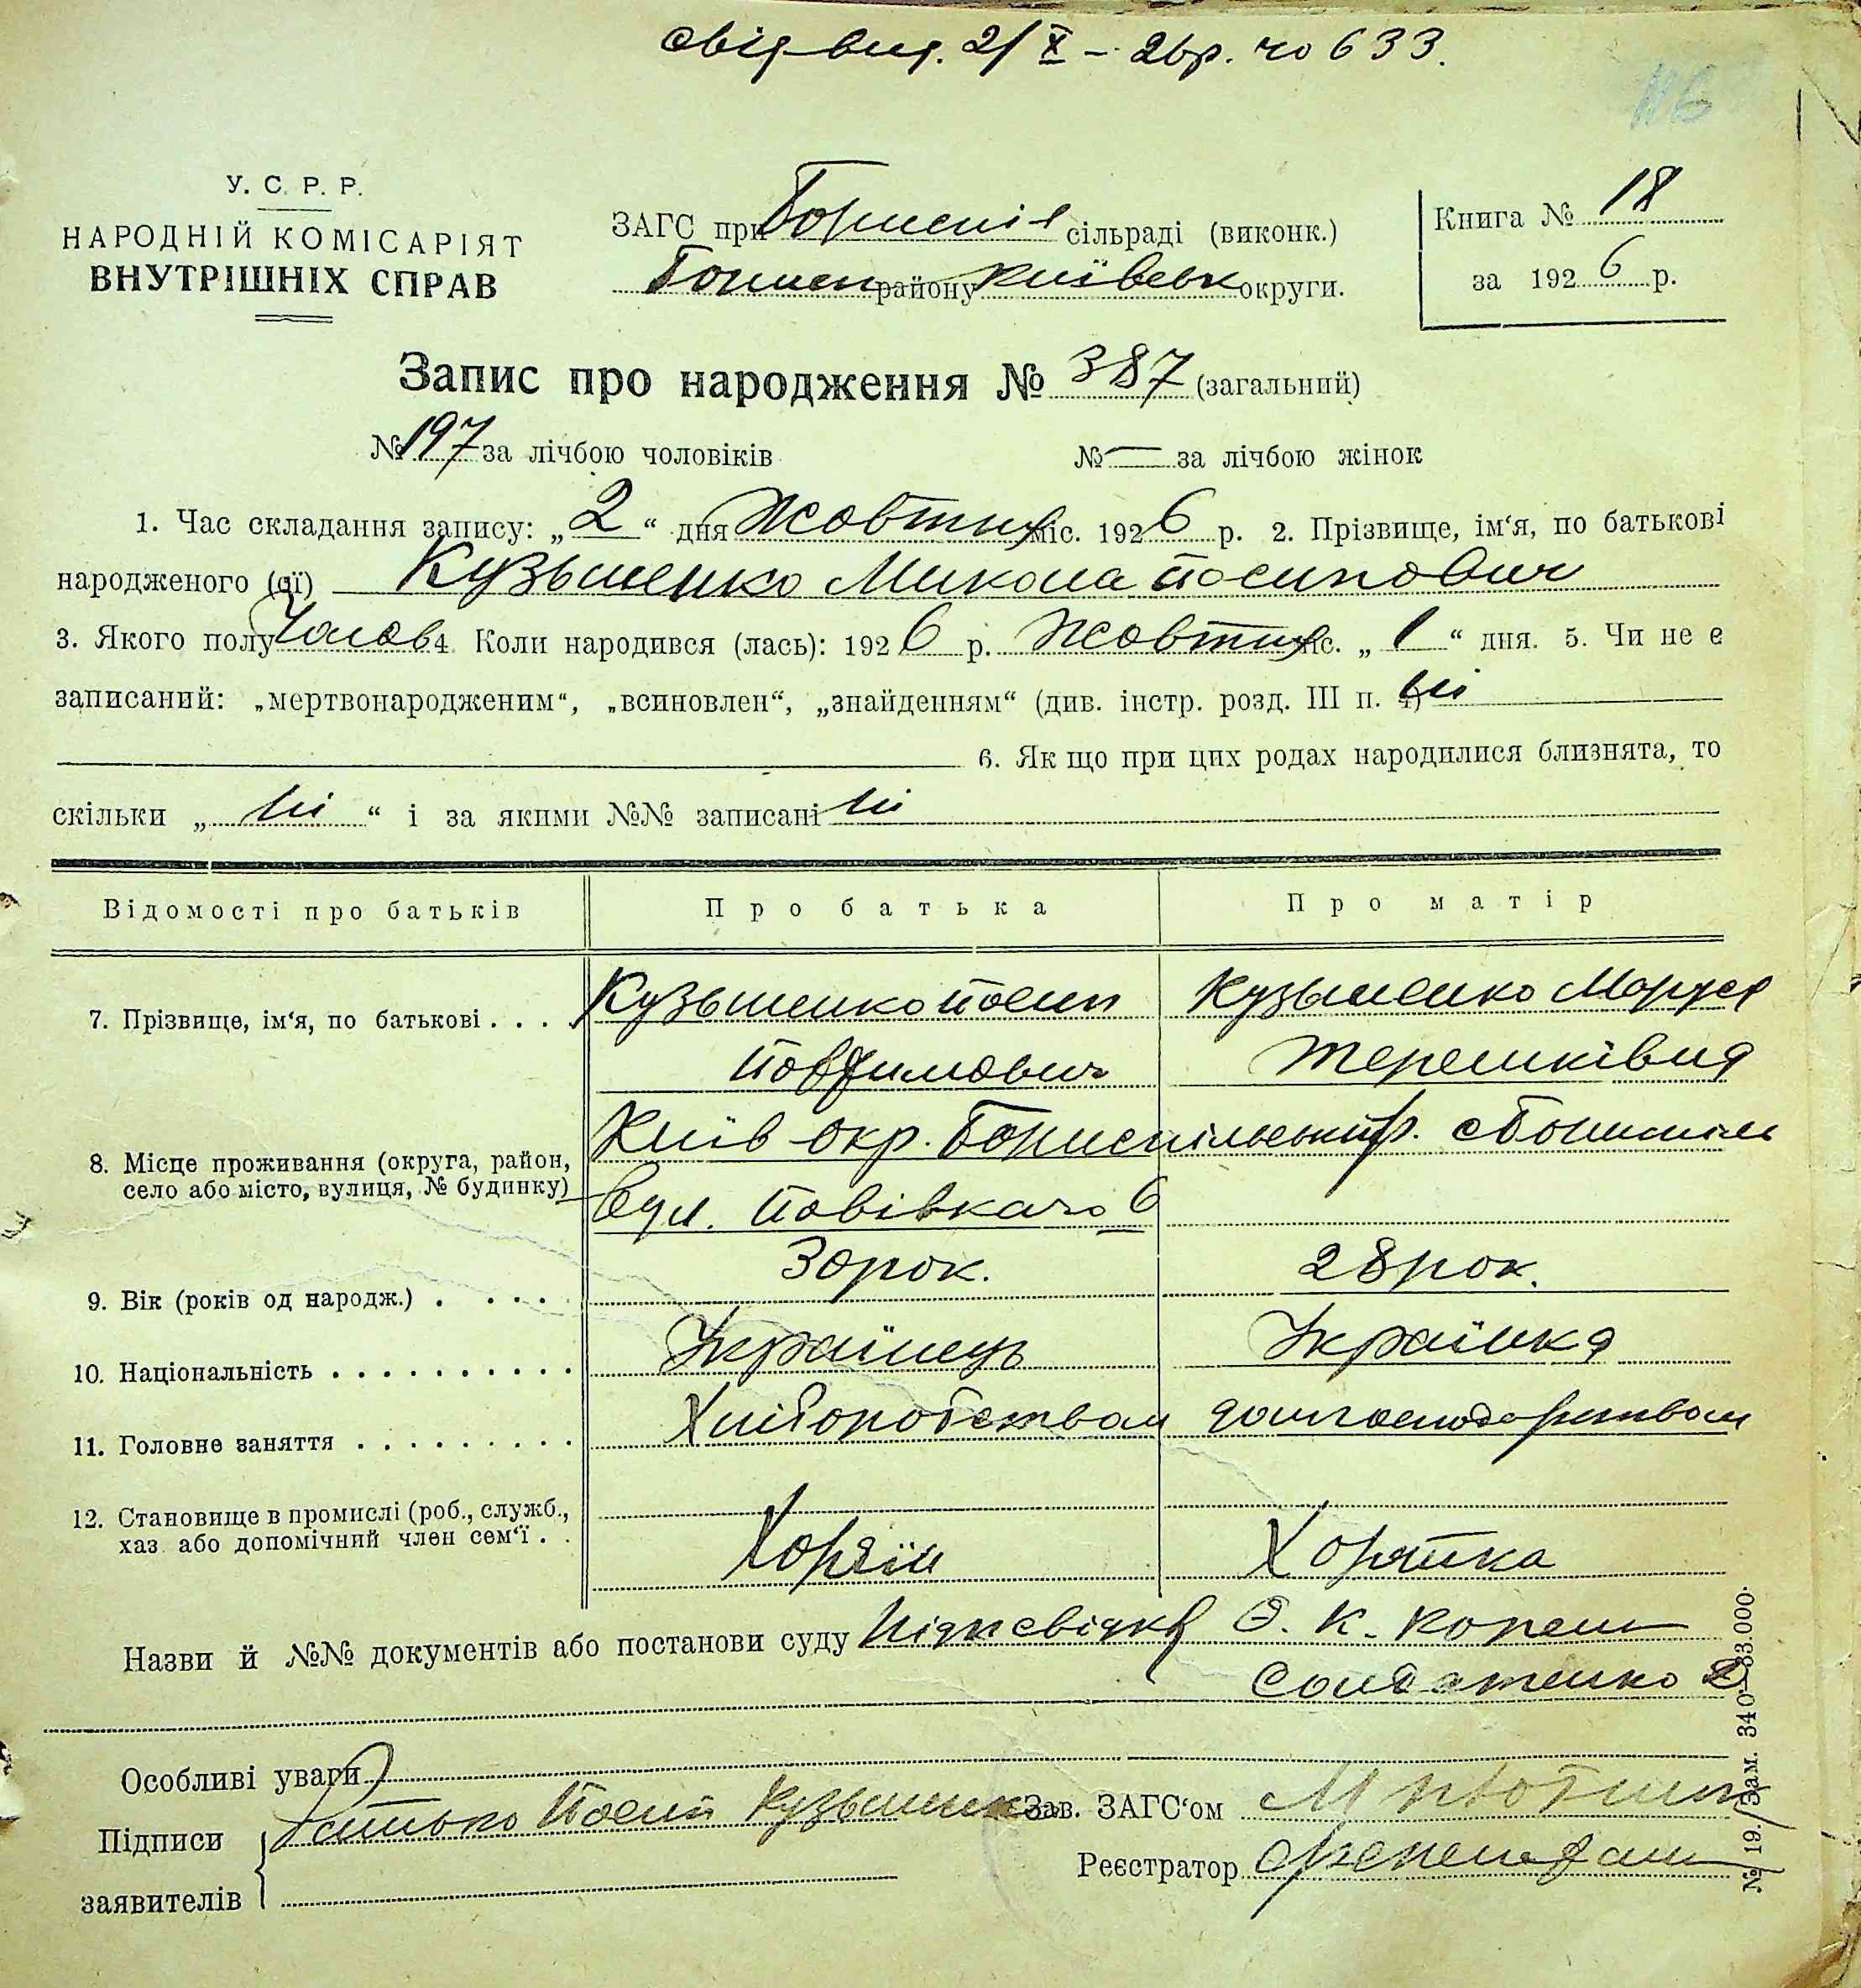 свід. вид. 2/X – 26 р. № 633.
У. С. Р. Р.
НАРОДНІЙ КОМІСАРІЯТ
ВНУТРІШНІХ СПРАВ
ЗАГС при сільраді (виконк.)
району Київськ округи.
Книга № 18
за 1926 р.
Запис про народження № 387 (загальний)
№ 197 за лічбою чоловіків № — за лічбою жінок
1. Час складання запису: „2“ дня Жовтня міс. 1926 р. 2. Прізвище, ім‘я, по батькові
народженого (ої) Кузьменко Микола Йосипович
3. Якого полу Чолов 4. Коли народився (лась): 1926 р. Жовтня міс. „1“ дня. 5. Чи не є
записаний: „мертвонародженим“, „всиновлен“, „знайденням“ (див. інстр. розд. III п. 4) ні
6. Як що при цих родах народилися близнята, то
скільки „ні“ і за якими №№ записані ні
Відомості про батьків Про батька Про матір
7. Прізвище, ім‘я, по батькові . . . . Кузьменко Йосип Кузьменко Маруся
Терешківна
8. Місце проживання (округа, район, Київ окр. Бориспільський р. с Бориспіль
село або місто, вулиця, № будинку) вул. 6
9. Вік (років од народж.) . . . . 30 рок. 28 рок.
10. Національність . . . . . . . . . . Українець Українка
11. Головне заняття . . . . . . . . . Хліборобством домгосподарством
12. Становище в промислі (роб., служб.,
хаз. або допомічний член сем‘ї . . Хозяїн Хозяйка
Назви й №№ документів або постанови суду К.
Солдатенко
Особливі уваги
Підписи батько Йосип Кузьменко Зав. ЗАГС‘ом
Реєстратор
заявителів
№ 19. Зам. 340—33.000.